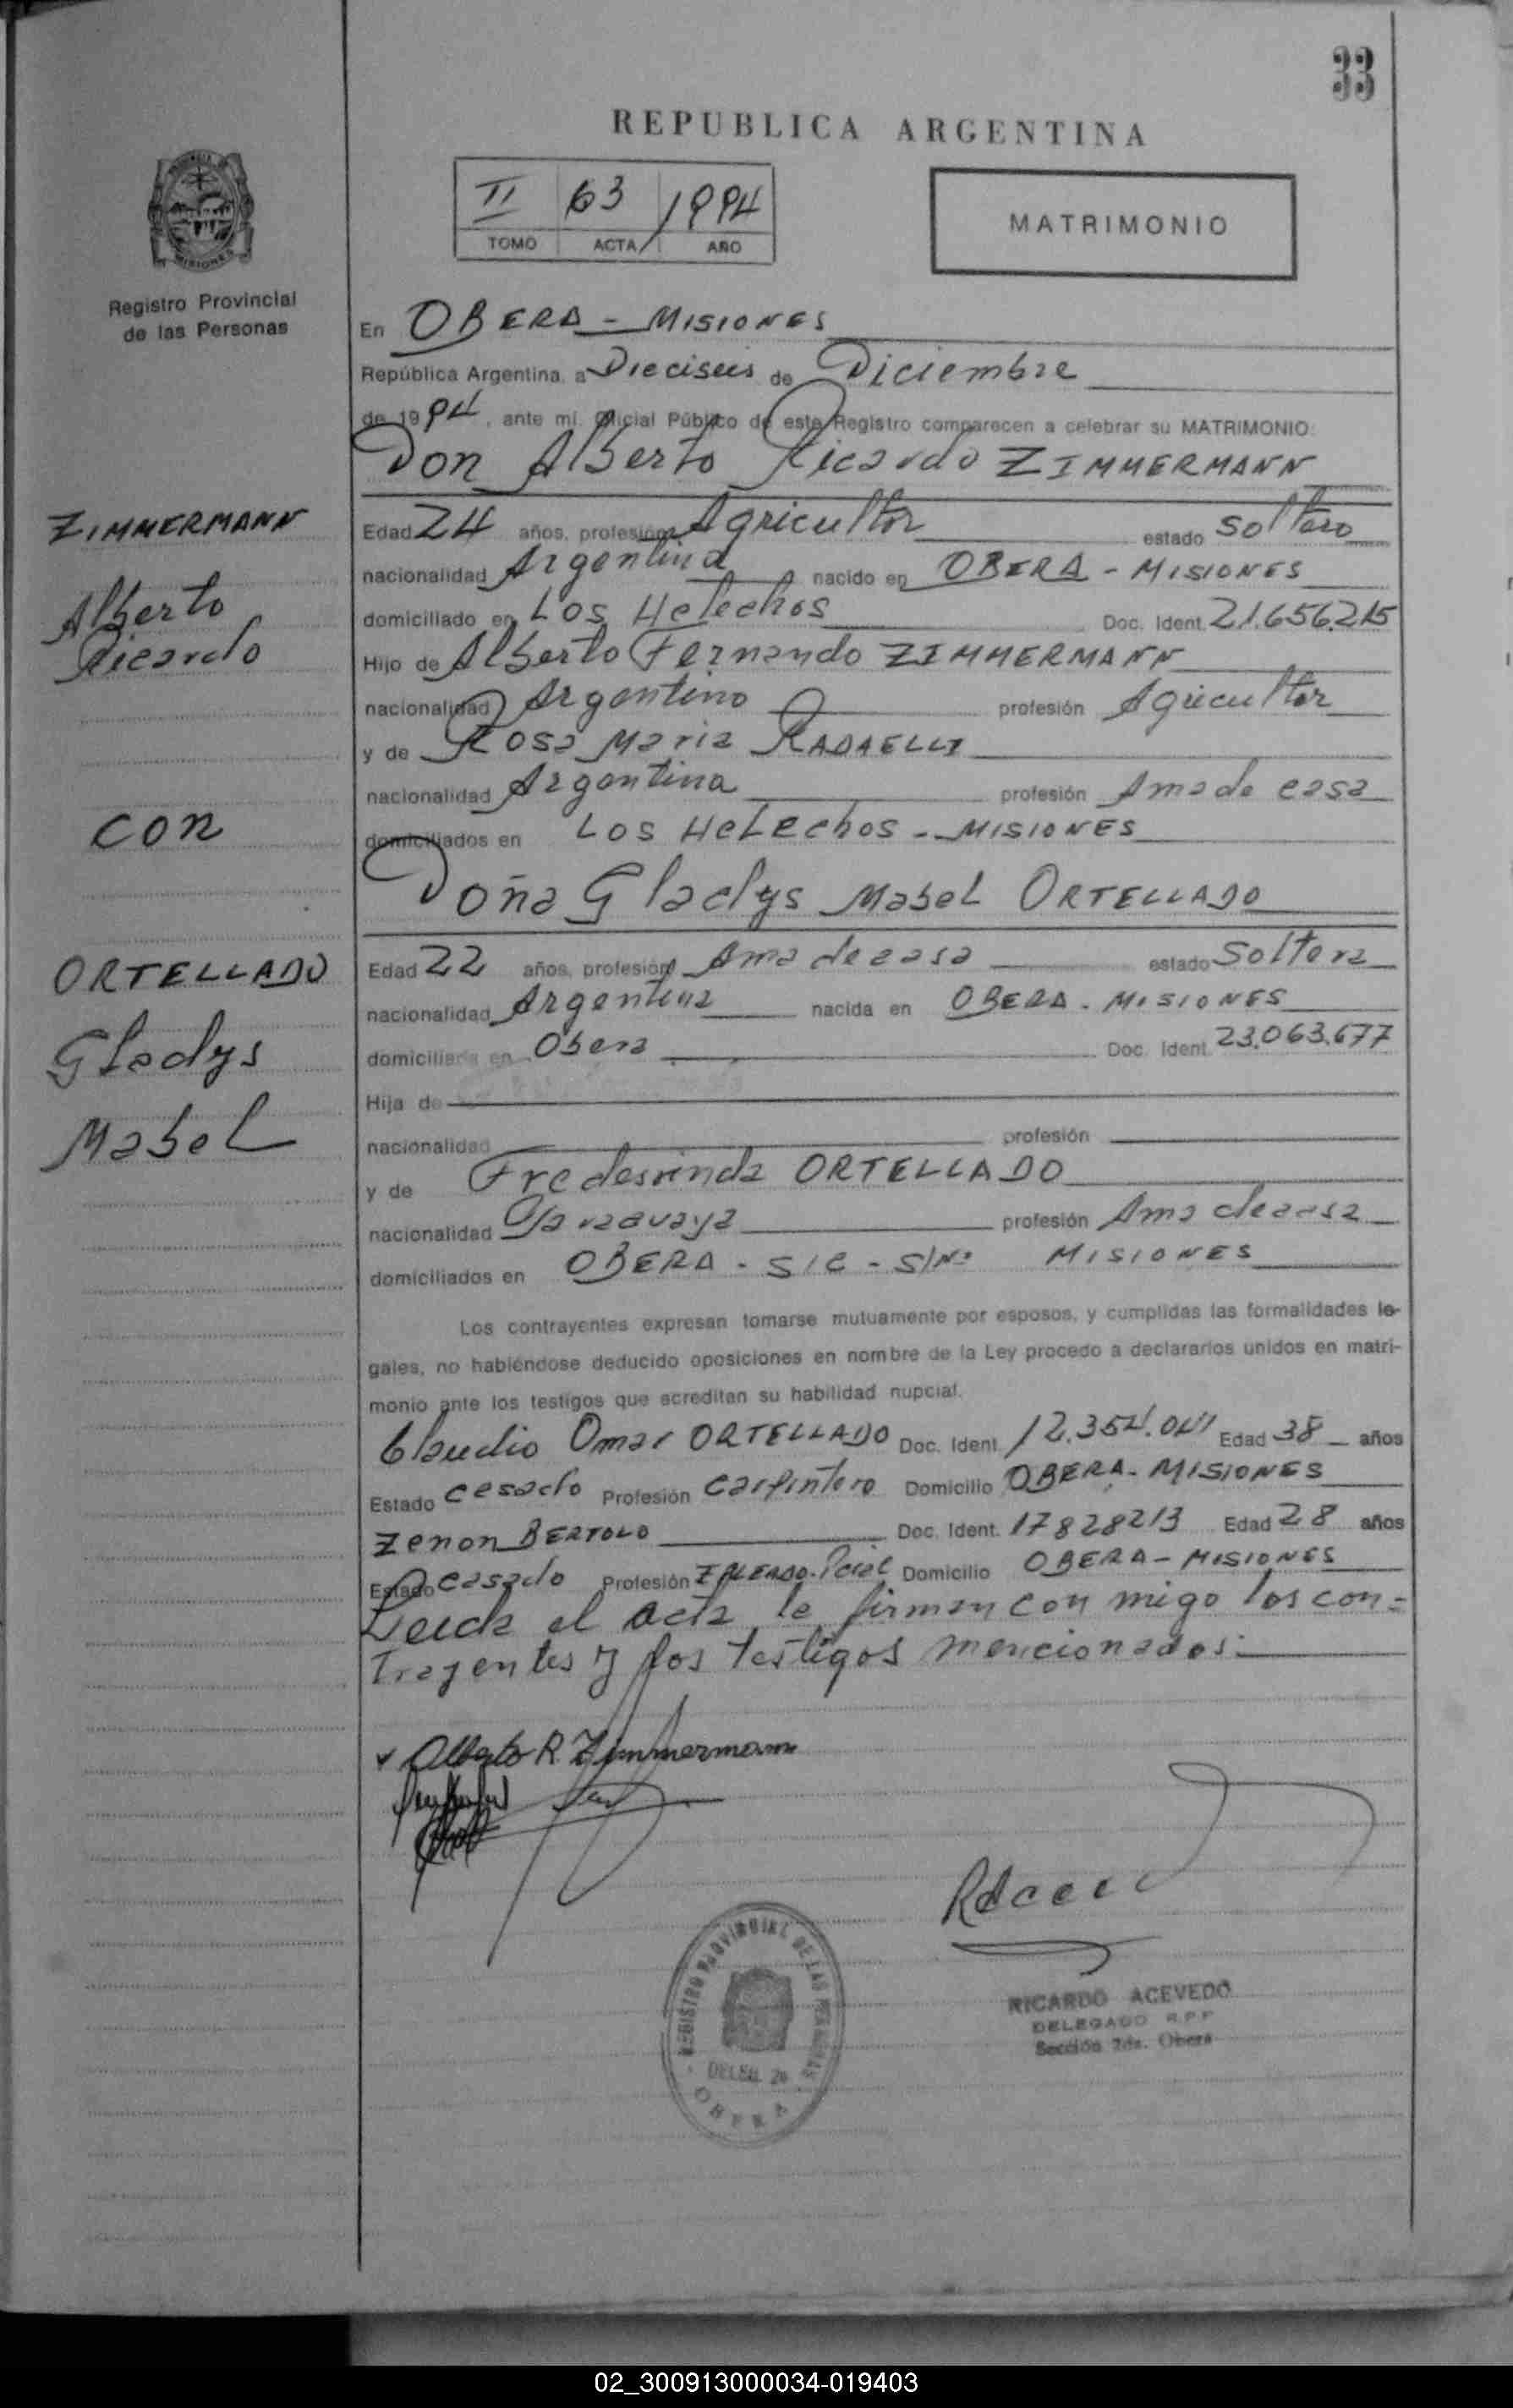 33
REPUBLICA ARGENTINA
II 63 1994
TOMO ACTA AÑO
MATRIMONIO
MISIONES
Registro Provincial
de las Personas
En OBERA - MISIONES
República Argentina, a Dieciseis de Diciembre
de 1994, ante mí, Oficial Público de este Registro comparecen a celebrar su MATRIMONIO:
Don Alberto Ricardo ZIMMERMANN
ZIMMERMANN
Alberto
Ricardo
con
ORTELLADO
Gladys
Mabel
Edad 24 años, profesión Agricultor estado soltero
nacionalidad Argentina nacido en OBERA - MISIONES
domiciliado en Los Helechos Doc. Ident. 21.656.215
Hijo de Alberto Fernando ZIMMERMANN
nacionalidad Argentino profesión Agricultor
y de Rosa Maria RADAELLI
nacionalidad Argentina profesión Ama de casa
domiciliados en Los HeLechos - MISIONES
Doña Gladys Mabel ORTELLADO
Edad 22 años, profesión Ama de casa estado Soltera
nacionalidad Argentina nacida en OBERA - MISIONES
domiciliada en Obera Doc. Ident. 23.063.677
Hija de
nacionalidad profesión
y de Fredesvinda ORTELLADO
nacionalidad Paraguaya profesión Ama de casa
domiciliados en OBERA - S/C - S/Nº MISIONES
Los contrayentes expresan tomarse mutuamente por esposos, y cumplidas las formalidades le-
gales, no habiéndose deducido oposiciones en nombre de la Ley procedo a declararlos unidos en matri-
monio ante los testigos que acreditan su habilidad nupcial.
Claudio Omar ORTELLADO Doc. Ident. 12.354.041 Edad 38 años
Estado casado Profesión Carpintero Domicilio OBERA - MISIONES
Zenon BERTOLO Doc. Ident. 17828213 Edad 28 años
Estado casado Profesión Domicilio OBERA - MISIONES
Leida el acta la firman con migo los con=
trayentes y los testigos mencionados.
Alberto R. Zimmermann
REGISTRO PROVINCIAL DE LAS PERSONAS
OBERA
RICARDO ACEVEDO
DELEGADO R.P.P
Sección 2da. Oberá
02_300913000034-019403